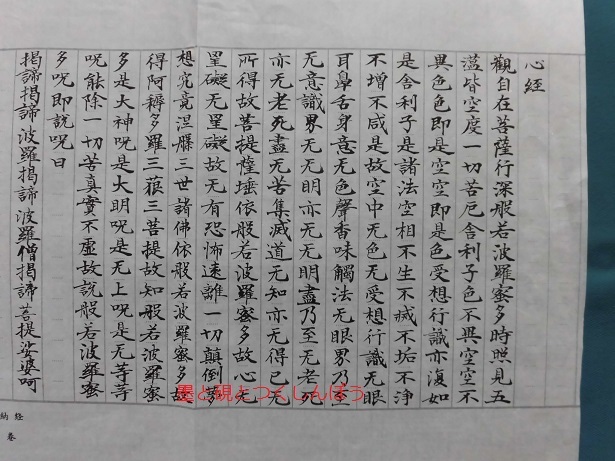 心経
觀自在菩薩行深般若波羅蜜多時照見五
蘊皆空度一切苦厄舎利子色不異空空不
異色色即是空空即是色受想行識亦復如
是舎利子是諸法空相不生不滅不垢不浄
不增不减是故空中无色无受想行識无眼
耳鼻舌身意无色聲香味觸法无眼界乃至
无意識界无无明亦无无明盡乃至无老死
亦无老死盡无苦集滅道无知亦无得已无
所得故菩提薩埵依般若波羅蜜多故心无
罣礙无罣礙故无有恐怖遠離一切顛倒夢
想究竟涅槃三世諸佛依般若波羅蜜多故
得阿耨多羅三藐三菩提故知般若波羅蜜
多是大神呪是大明呪是无上呪是无等等
呪能除一切苦真實不虛故説般若波羅蜜
多呪即説呪曰
揭諦揭諦波羅揭諦波羅僧揭諦菩提娑婆呵
納経
巻
墨と硯とつくしんぼう